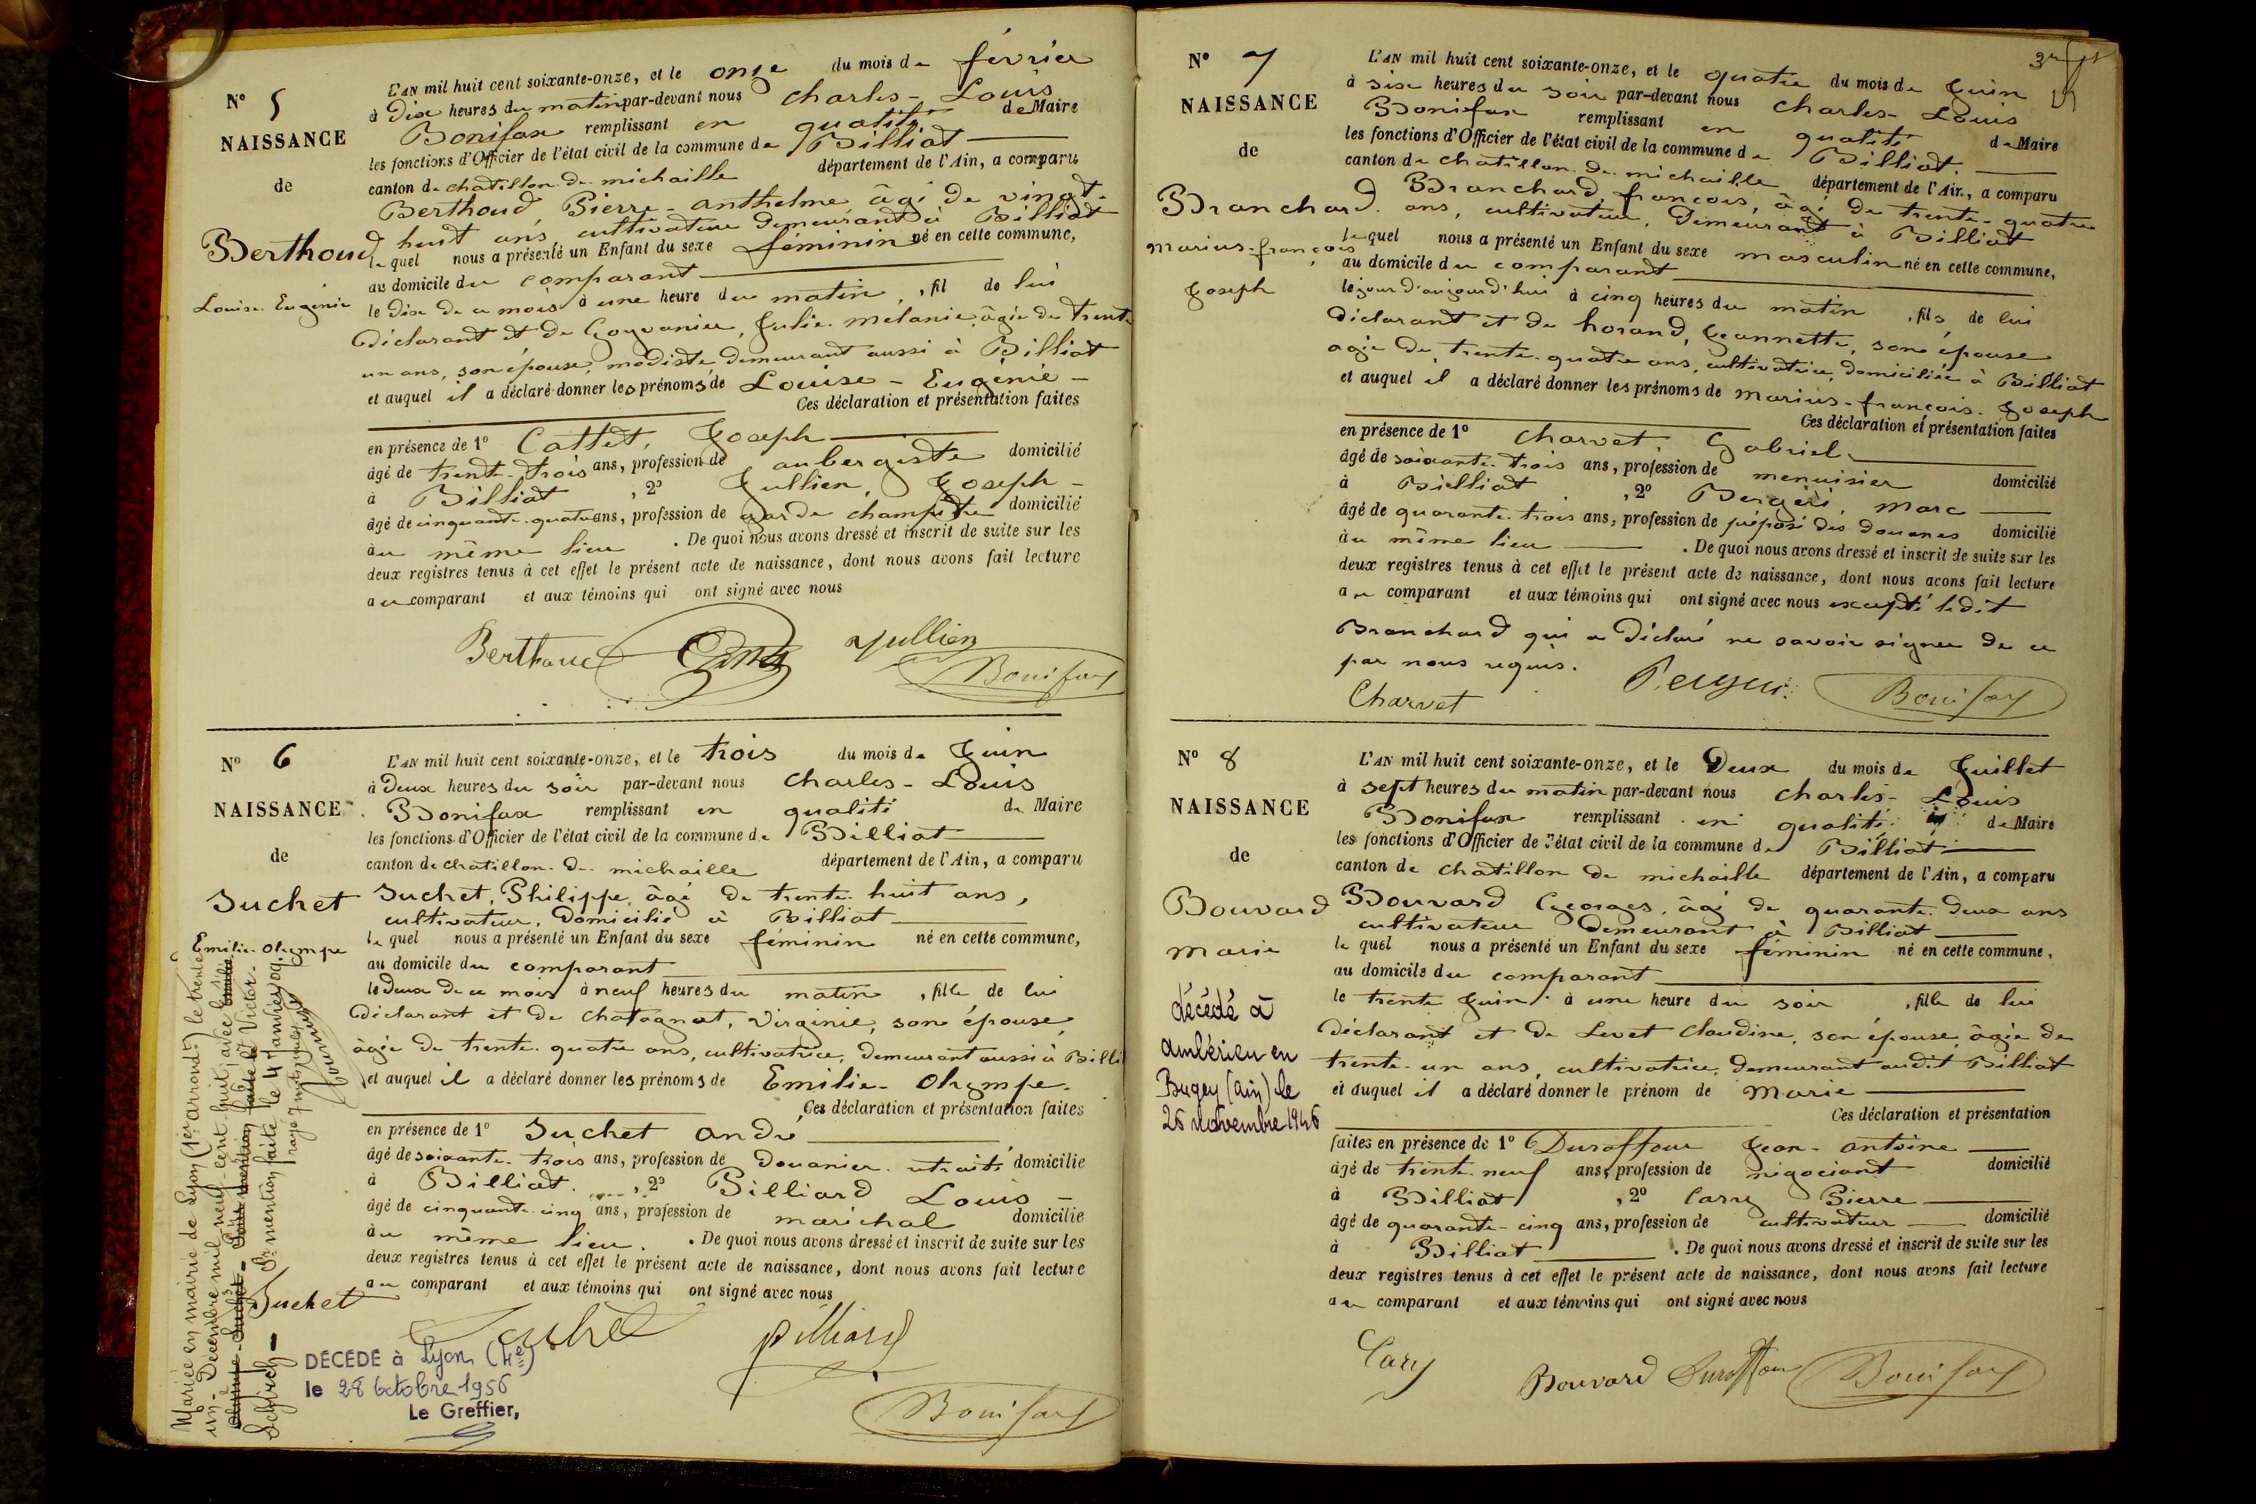 N° 5
NAISSANCE
de
Berthoud
Louise Eugénie
L'AN mil huit cent soixante-onze, et le onze du mois de février
à Dix heures du matin par-devant nous Charles-Louis
Bonifax remplissant en qualité de Maire
les fonctions d'Officier de l'état civil de la commune de Billiat
canton de chatillon-de-michaille département de l'Ain, a comparu
Berthoud Pierre-anthelme âgé de vingt-
huit ans cultivateur demeurant à Billiat
lequel nous a présenté un Enfant du sexe féminin né en cette commune,
au domicile du comparant
le dix de ce mois à une heure du matin, fil de lui
déclarant et de Julie melanie âgée de trente
un ans, son épouse, modiste, demeurant aussi à Billiat
et auquel il a déclaré donner les prénoms de Louise-Eugénie-
Ces déclaration et présentation faites
en présence de 1° Cattet, Joseph
âgé de trente-trois ans, profession de aubergiste domicilié
à Billiat, 2° Jullien, Joseph-
âgé de cinquante-quatre ans, profession de garde champêtre domicilié
au même lieu. De quoi nous avons dressé et inscrit de suite sur les
deux registres tenus à cet effet le présent acte de naissance, dont nous avons fait lecture
au comparant et aux témoins qui ont signé avec nous
Berthoud Jullien
Bonifax
N° 6
NAISSANCE
de
Suchet
Emilie-olympe
L'AN mil huit cent soixante-onze, et le trois du mois de Juin
à Deux heures du soir par-devant nous Charles-Louis
Bonifax remplissant en qualité de Maire
les fonctions d'Officier de l'état civil de la commune de Billiat
canton de chatillon-de-michaille département de l'Ain, a comparu
Suchet, Philippe, âgé de trente-huit ans,
cultivateur, domicilié à Billiat
lequel nous a présenté un Enfant du sexe féminin né en cette commune,
au domicile du comparant
le deux de ce mois à neuf heures du matin, fille de lui
déclarant et de chatagnat, Virginie, son épouse,
âgée de trente-quatre ans, cultivatrice, demeurant aussi à Billi
et auquel il a déclaré donner les prénoms de Emilie-Olympe.
Ces déclaration et présentation faites
en présence de 1° Suchet andré
âgé de soixante-trois ans, profession de Douanier retraité domicilié
à Billiat, 2° Billiard Louis-
âgé de cinquante-cinq ans, profession de maréchal domicilié
au même lieu. De quoi nous avons dressé et inscrit de suite sur les
deux registres tenus à cet effet le présent acte de naissance, dont nous avons fait lecture
au comparant et aux témoins qui ont signé avec nous
Suchet Billiard
Bonifax
Mariée en mairie de Lyon (1er arrondt) le trente
un Décembre mil neuf cent huit, avec
Olympe Suchet - Victor
Schirch - Dt mention faite le 4 Janvier 1909.
rayé 7 mots nuls
DÉCÉDÉ à Lyon (4e)
le 28 Octobre 1956
Le Greffier,
N° 7
NAISSANCE
de
Branchard
Marius-françois
Joseph
L'AN mil huit cent soixante-onze, et le quatre du mois de Juin
à six heures du soir par-devant nous Charles-Louis
Bonifax remplissant en qualité de Maire
les fonctions d'Officier de l'état civil de la commune de Billiat
canton de chatillon-de-michaille département de l'Ain, a comparu
Branchard françois, âgé de trente-quatre
ans, cultivateur, Demeurant à Billiat
lequel nous a présenté un Enfant du sexe masculin né en cette commune,
au domicile du comparant
le jour d'aujourd'hui à cinq heures du matin, fils de lui
déclarant et de horand, Jeannette, son épouse
agée de trente-quatre ans, cultivatrice, domiciliée à Billiat
et auquel il a déclaré donner les prénoms de marius-francois-Joseph
Ces déclaration et présentation faites
en présence de 1° Charvet Gabriel
âgé de soixante-trois ans, profession de menuisier domicilié
à Billiat, 2° marc
âgé de quarante-trois ans, profession de préposé des douanes domicilié
au même lieu. De quoi nous avons dressé et inscrit de suite sur les
deux registres tenus à cet effet le présent acte de naissance, dont nous avons fait lecture
au comparant et aux témoins qui ont signé avec nous excepté ledit
Branchard qui a déclaré ne savoir signer de ce
par nous requis.
Charvet Bonifax
N° 8
NAISSANCE
de
Bouvard
marie
décédé à
ambérieu en
Bugey (ain) le
26 novembre 1946
L'AN mil huit cent soixante-onze, et le Deux du mois de Juillet
à sept heures du matin par-devant nous Charles-Louis
Bonifax remplissant en qualité de Maire
les fonctions d'Officier de l'état civil de la commune de Billiat
canton de chatillon de michaille département de l'Ain, a comparu
Bouvard Georges, âgé de quarante-deux ans
cultivateur demeurant à Billiat
lequel nous a présenté un Enfant du sexe féminin né en cette commune,
au domicile du comparant
le trente Juin à une heure du soir, fille de lui
déclarant et de Levet Claudine, son épouse, âgée de
trente-un ans, cultivatrice, demeurant audit Billiat
et auquel il a déclaré donner le prénom de Marie
Ces déclaration et présentation
faites en présence de 1° Duraffour Jean-antoine
âgé de trente-neuf ans, profession de négociant domicilié
à Billiat, 2° Carry Pierre
âgé de quarante-cinq ans, profession de cultivateur domicilié
à Billiat. De quoi nous avons dressé et inscrit de suite sur les
deux registres tenus à cet effet le présent acte de naissance, dont nous avons fait lecture
au comparant et aux témoins qui ont signé avec nous
Cary Bouvard Duraffour Bonifax